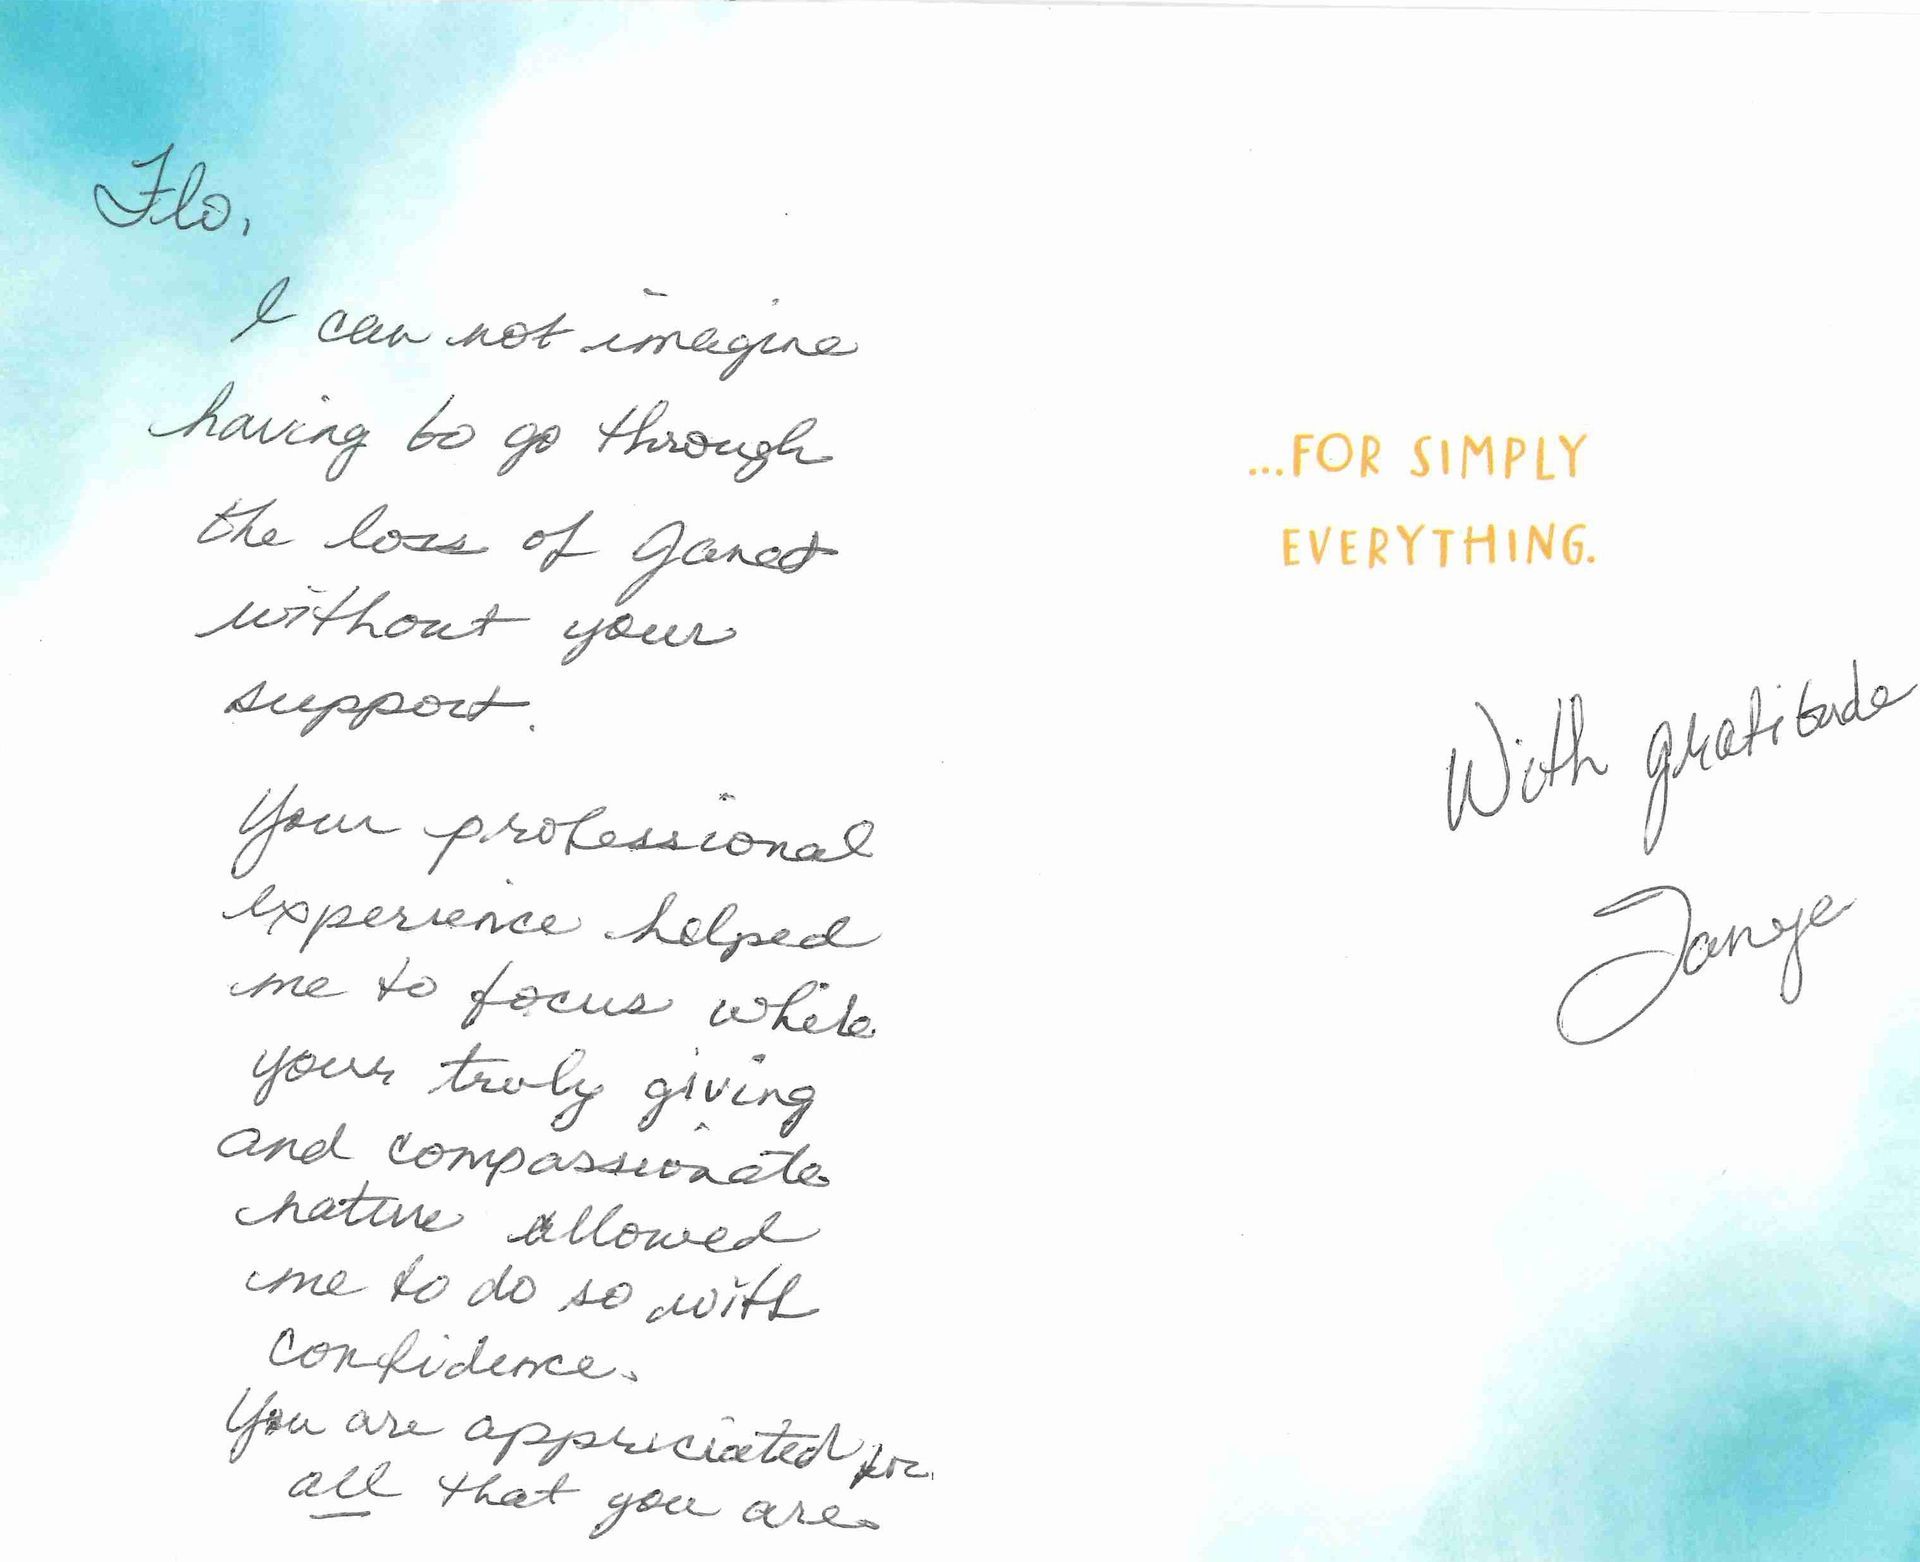 Flo,
I can not imagine
having to go through
the loss of Janet
without your
support.
Your professional
experience helped
me to focus while
your truly giving
and compassionate
nature allowed
me to do so with
confidence.
You are appreciated for
all that you are.
...FOR SIMPLY
EVERYTHING.
With gratitude
Tanye